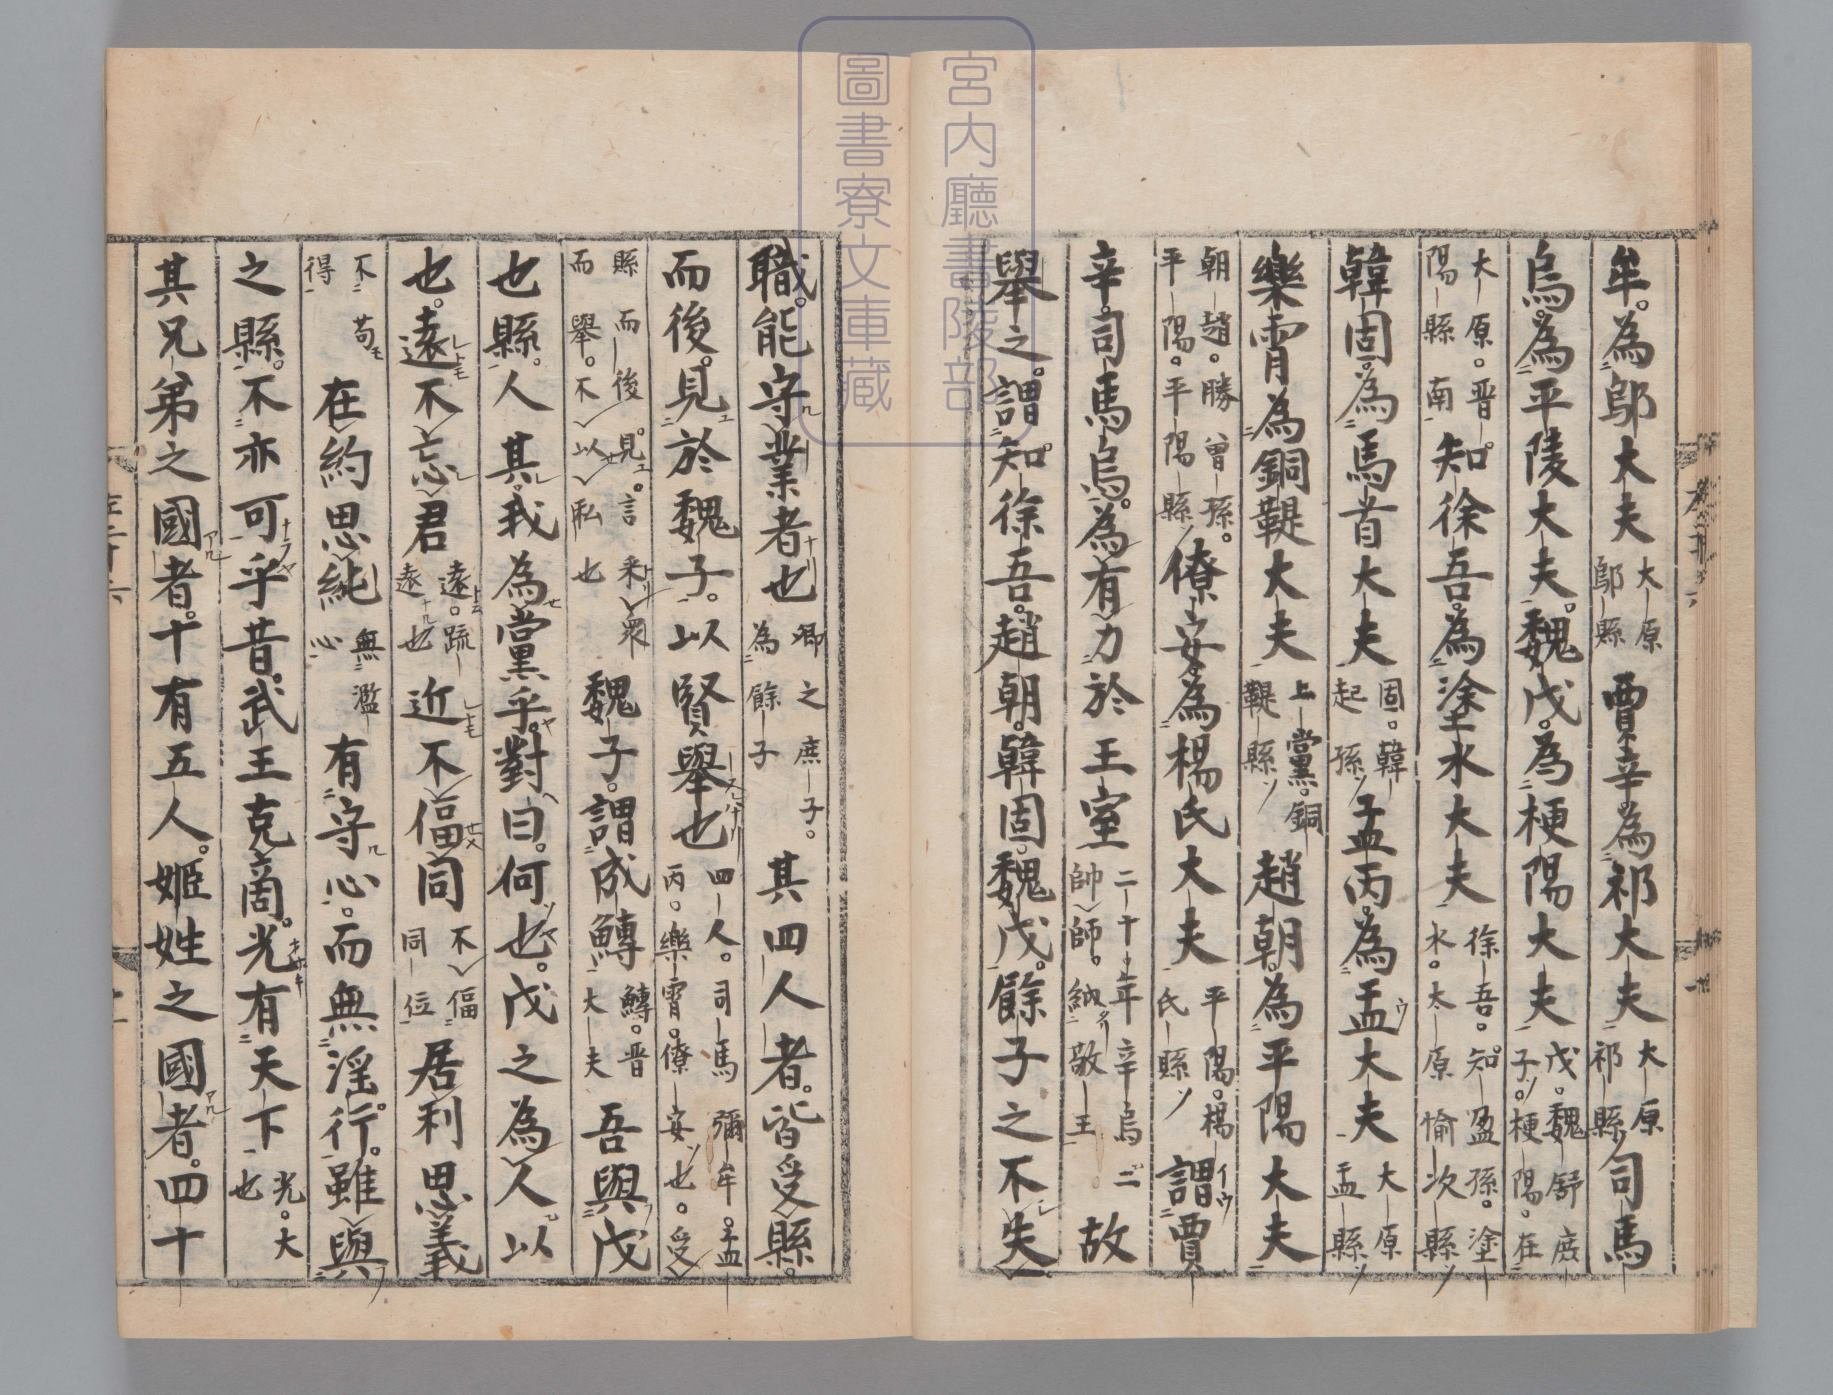 牟。為鄔大夫大原鄔縣賈辛為祁大夫大原祁縣司馬
烏。為平陵大夫。魏戊。為梗陽大夫戊。魏舒庶子。梗陽。在
大原。晋陽縣南知徐吾。為塗水大夫徐吾。知盈孫。塗水。太原愉次縣
韓固。為馬首大夫固。韓起孫孟丙。為盂大夫大原盂縣
樂霄為銅鞮大夫上黨。銅鞮縣趙朝。為平陽大夫
朝趙。勝曾孫。平陽。平陽縣僚安。為楊氏大夫平陽。楊氏縣謂賈
辛。司馬烏。為有力於王室二十二年辛烏帥師。納敬王故
舉之。謂知徐吾。趙朝。韓固。魏戊。餘子之不失
職。能守業者也卿之庶子。為餘子其四人者。皆受縣。
而後。見於魏子。以賢舉也四人。司馬彌牟。孟丙。樂霄。僚安也。受
縣而後見。言采衆而舉。不以私也魏子。謂成鱄鱄。晋大夫吾與戊
也縣。人其。我為黨乎。對曰。何也。戊之為人。以
也。遠不忘君遠。疏遠也近不偪同不偪同位居利思義
不苟得在約思純無濫心有守心。而無淫行。雖與
之縣。不亦可乎昔。武王克啇。光有天下光。大也
其兄弟之國者。十有五人。姬姓之國者。四十
宮内廳書陵部
圖書寮文庫藏